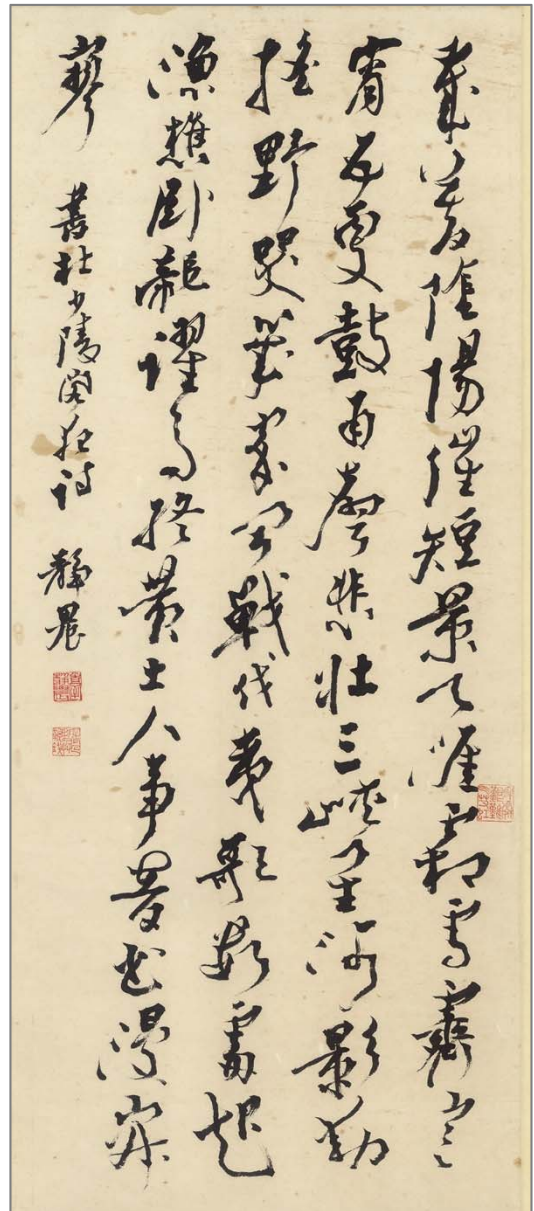 歲暮陰陽催短景天涯霜雪霽寒
宵五更鼓角聲悲壯三峽星河影動
搖野哭幾家聞戰伐夷歌數處起
漁樵臥龍躍馬終黃土人事音書漫寂
寥 書杜少陵閣夜詩 靜農